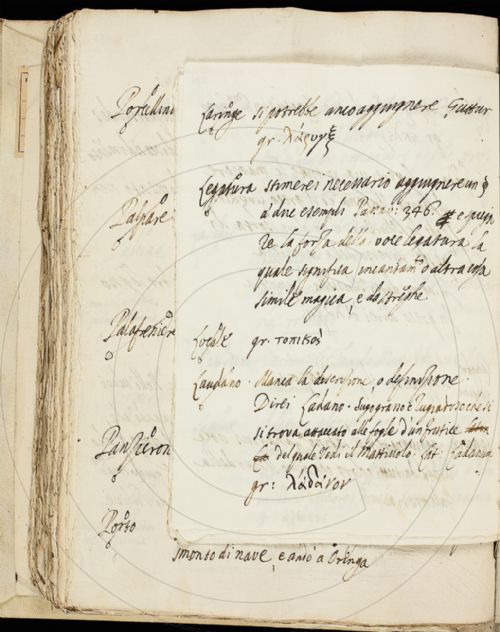 Porcellino
Laringe si potrebbe anco aggiugnere Guttur
gr. λάρυγξ
Legatura stimerei necessario aggiugnere un
Passare
a due esempli Pataf. 346. e
re la forza della voce legatura la
quale significa incantam.o o altra cosa
simile magica, e da streghe
Palafreniere
Locale gr. τοπικὸς
Laudáno. Manca la descrizione, o definizione.
Direi Ladano. Sugo grasso e rugiadoso che si
si trova attaccato alle foglie d'un frutice
Panzeron
del quale vedi il Mattiuolo. Lat. Ladanum
gr: λάδανον
Porto
smonto di nave, e andò a Gringa